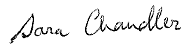 Sara Chandler